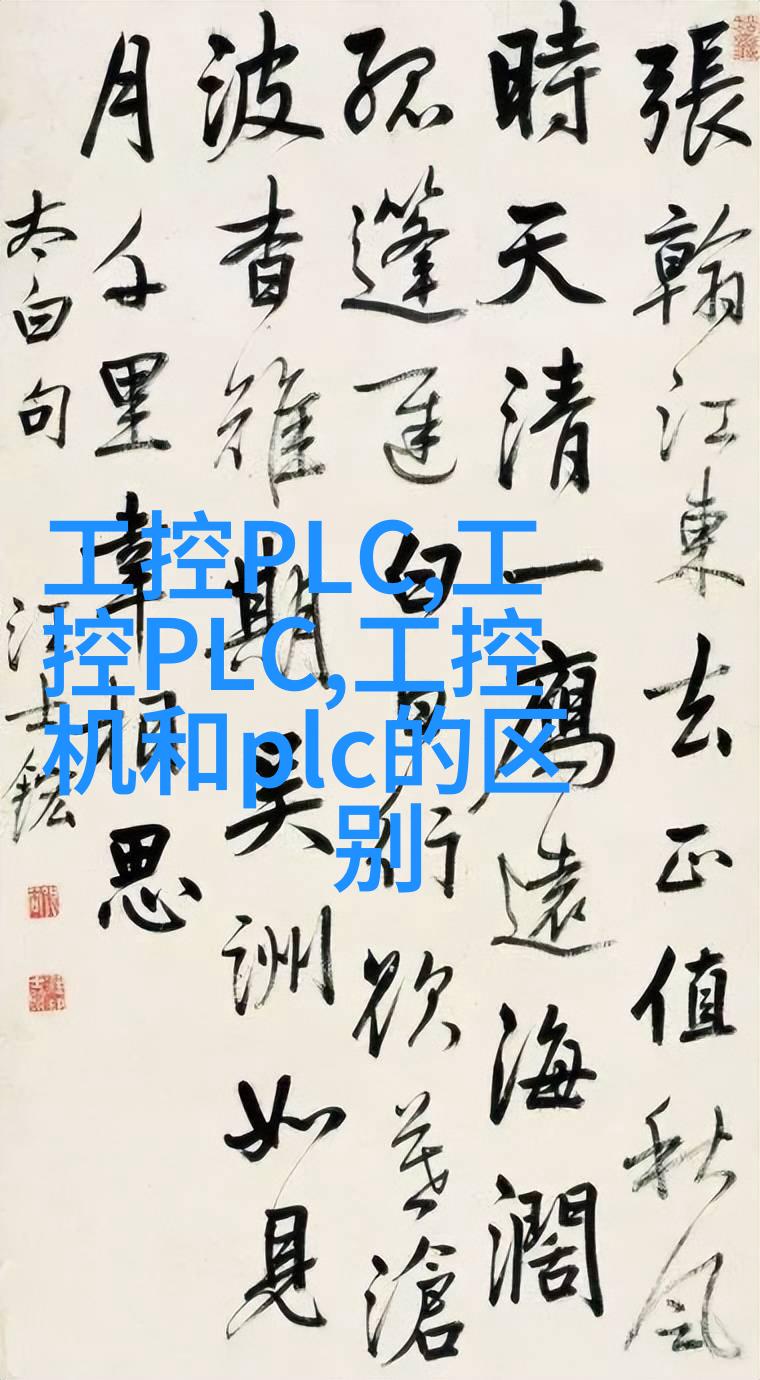 張翰江東去正值秋風
時天清一鴈遠海濶
孤篷遲白日行欲暮滄
波杳難期吳洲如見
月千里幸相思
太白句
汪士鋐
工控PLC,工
控PLC,工控
机和plc的区
别